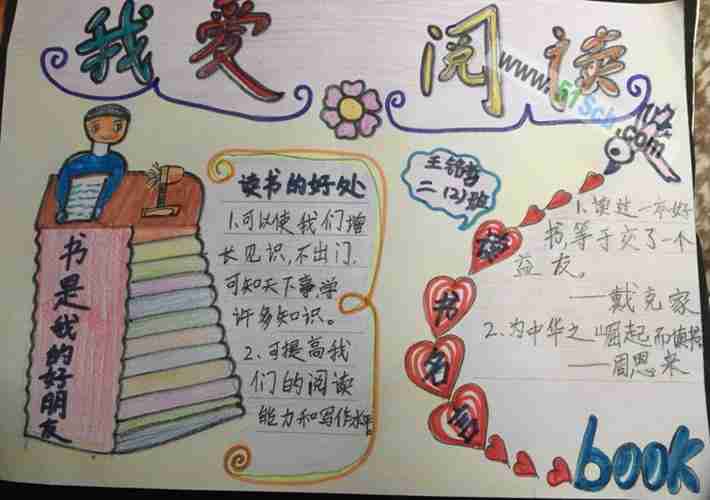 我爱阅读
www.51Scb.com
书是我的好朋友
读书的好处
1.可以使我们增
长见识,不出门,
可知天下事,学
许多知识。
2.可提高我
们的阅读
能力和写作水平
二(2)班
读书名言
1.读过一本好
书,等于交了一个
益友。
——戴克家
2.为中华之崛起而
——周恩来
book